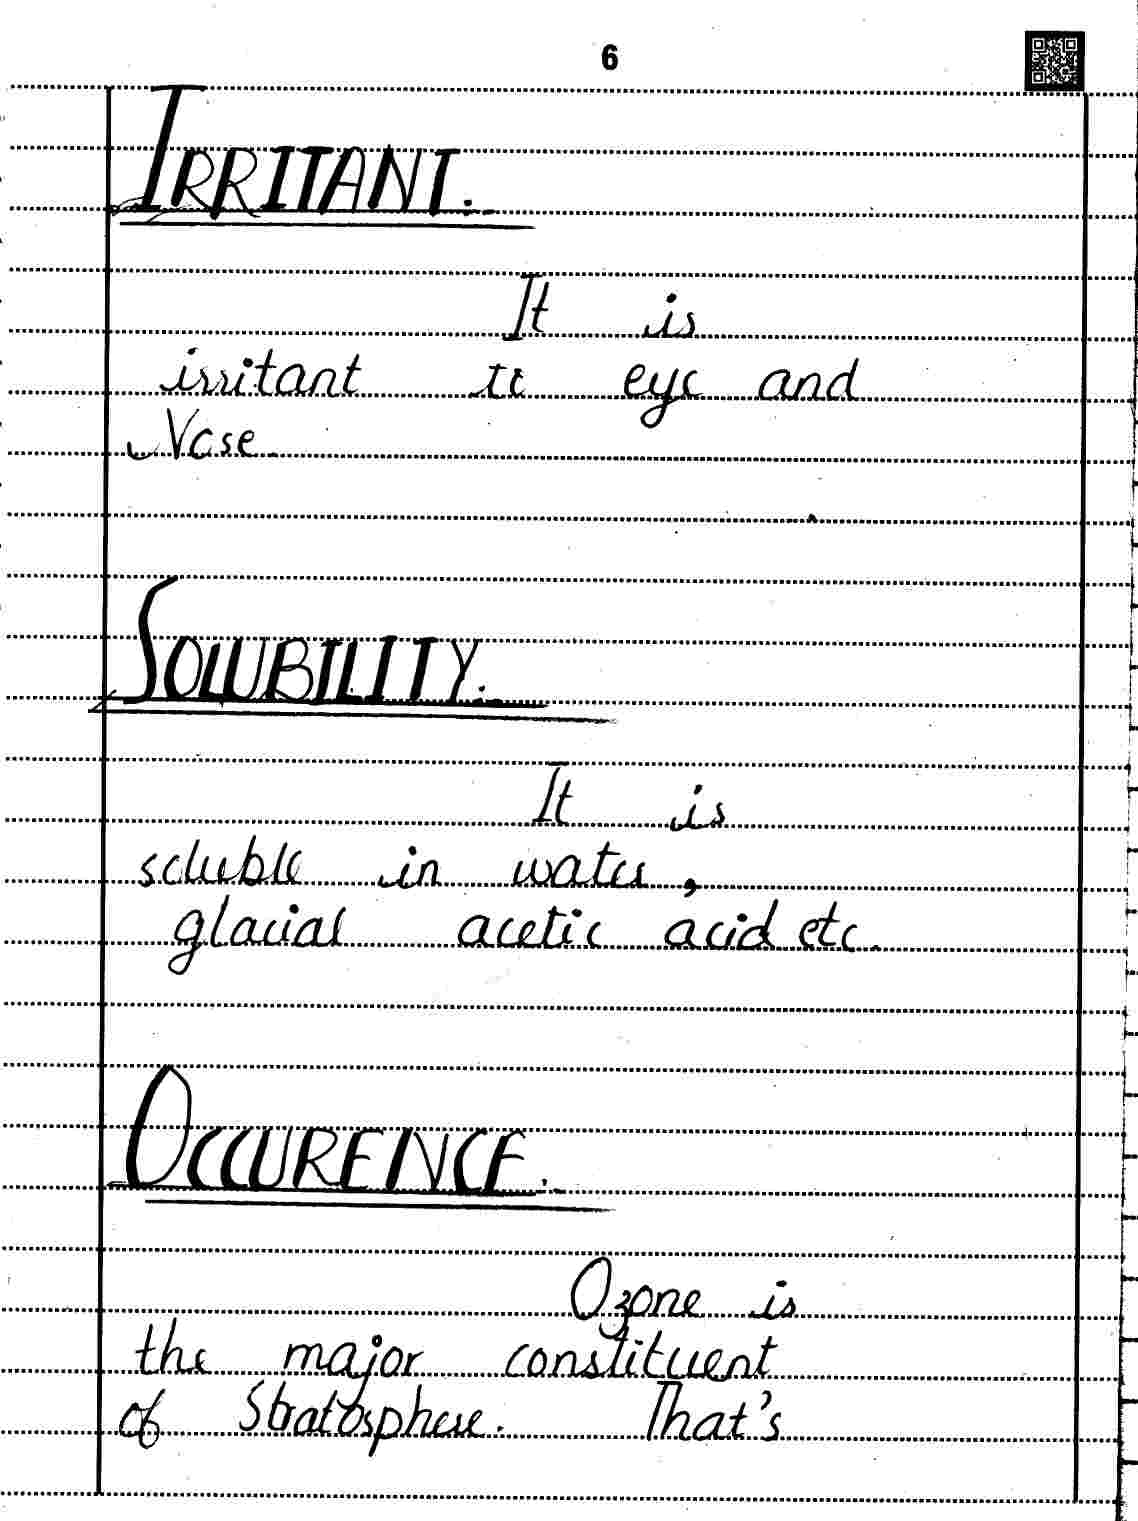 6
IRRITANT.
It is
irritant to eye and
Nose.
SOLUBILITY.
It is
soluble in water,
glacial acetic acid etc.
OCCURENCE.
Ozone is
the major constituent
of Stratosphere. That's